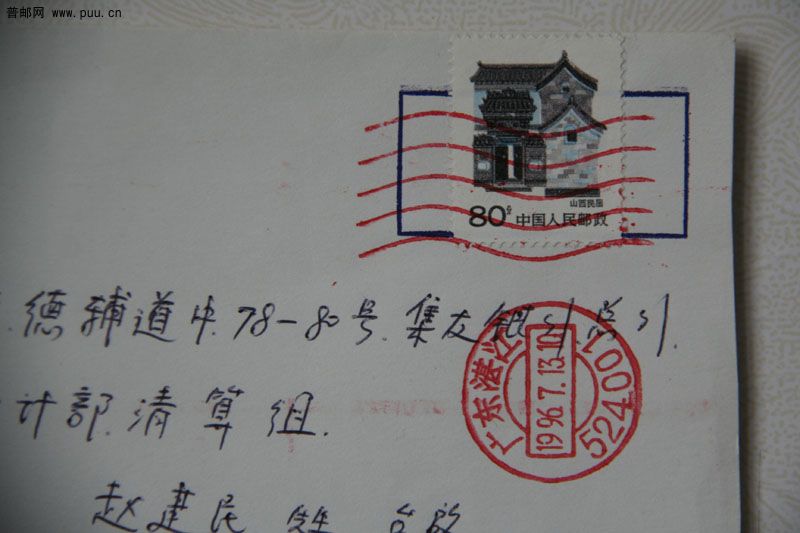 普邮网 www.puu.cn
山西民居
80分 中国人民邮政
德辅道中.78-80号.集友银行.总行.
计部.清算组.
广东湛江
1996.7.13.10
524007
赵建民 先生 台啟